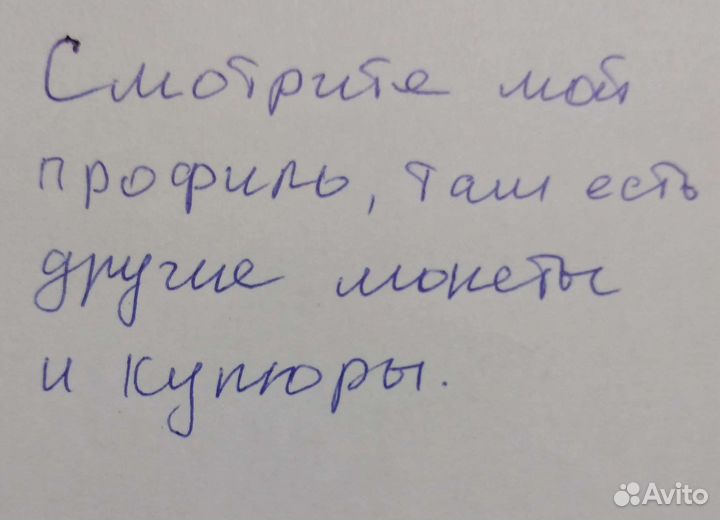 Смотрите мой
профиль, там есть
другие монеты
и купюры.
Avito